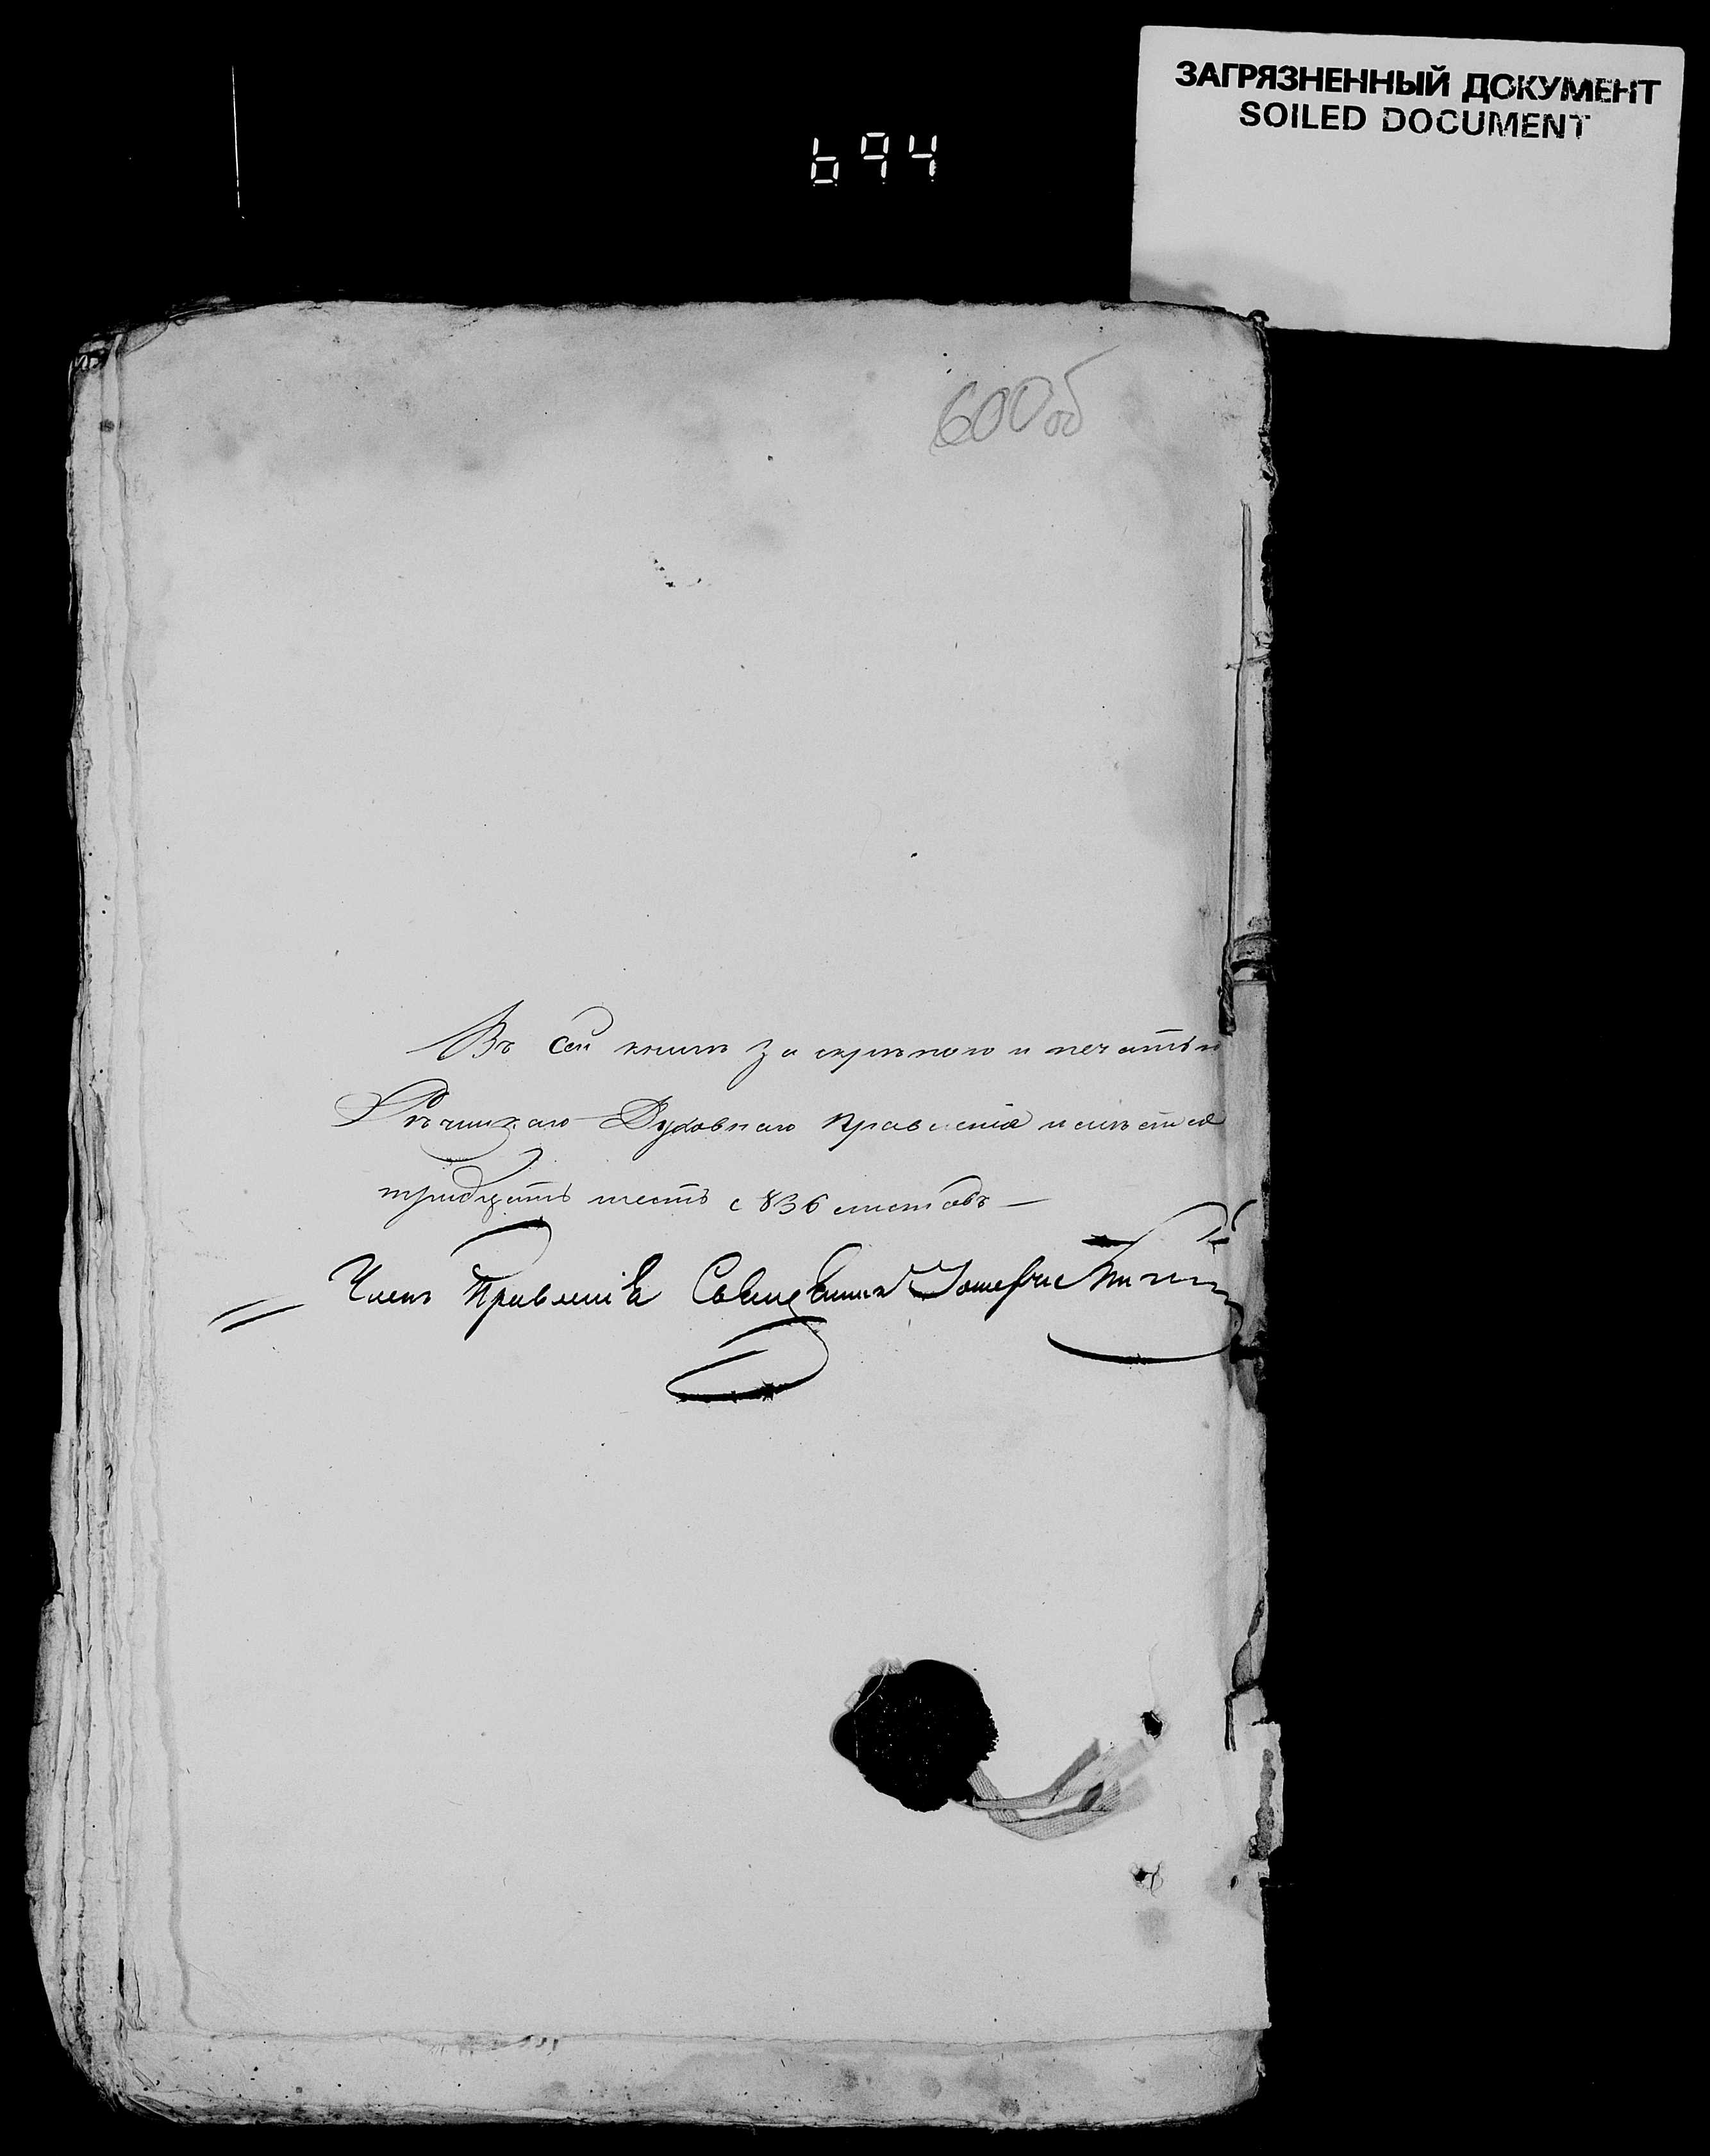 ЗАГРЯЗНЕННЫЙ ДОКУМЕНТ
SOILED DOCUMENT
694
600об
Въ сей книгѣ за скрѣпою и печатью
Рѣчицкаго Духовнаго Правленія имѣется
тридцать шесть листовъ
Членъ Правленія Священникъ